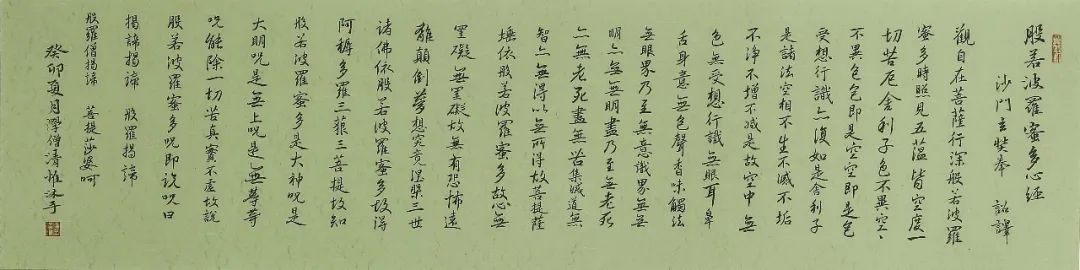 般若波羅蜜多心經
沙門玄奘奉 詔譯
觀自在菩薩行深般若波羅
蜜多時照見五蘊皆空度一
切苦厄舍利子色不異空、
不異色色即是空空即是色
受想行識亦復如是舍利子
是諸法空相不生不滅不垢
不淨不增不減是故空中無
色無受想行識無眼耳鼻
舌身意無色聲香味觸法
無眼界乃至無意識界無無
明亦無無明盡乃至無老死
亦無老死盡無苦集滅道無
智亦無得以無所得故菩提薩
埵依般若波羅蜜多故心無
罣礙無罣礙故無有恐怖遠
離顛倒夢想究竟涅槃三世
諸佛依般若波羅蜜多故得
阿耨多羅三藐三菩提故知
般若波羅蜜多是大神咒是
大明咒是無上咒是無等等
咒能除一切苦真實不虛故說
般若波羅蜜多咒即說咒曰
揭諦揭諦 般羅揭諦
般羅僧揭諦 菩提莎婆呵
癸卯夏月學僧清惟沐手